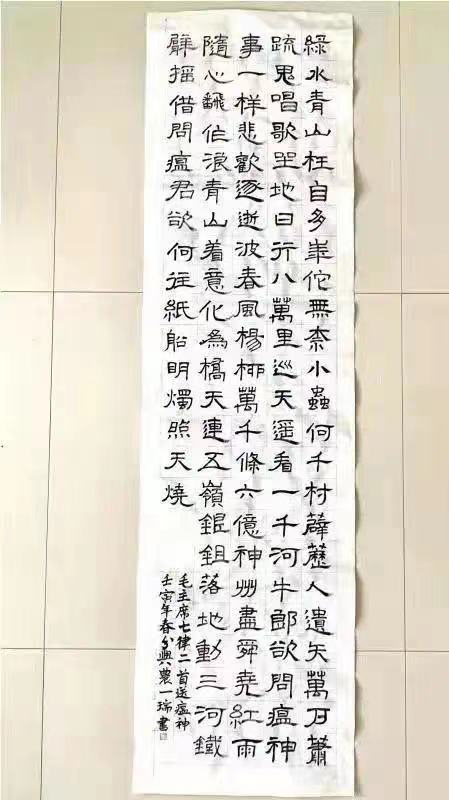 綠水青山枉自多華佗無奈小蟲何千村薜藶人遺矢萬戶蕭
疏鬼唱歌坐地日行八萬里巡天遥看一千河牛郎欲問瘟神
事一样悲歡逐逝波春風楊柳萬千條六億神州盡舜堯紅雨
隨心翻作浪青山着意化為橋天連五嶺銀鋤落地動三河鐵
臂摇借問瘟君欲何往紙船明燭照天燒
毛主席七律二首送瘟神
壬寅年春分興農一瑞書